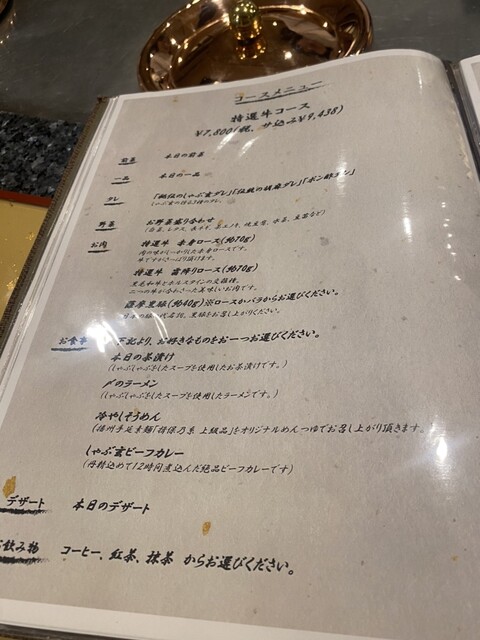 コースメニュー
特選牛コース
¥7,800(税、サ込み¥9,438)
前菜 本日の前菜
一品 本日の一品
タレ 「秘伝のしゃぶ玄ダレ」「伝統の胡麻ダレ」「ポン酢オン」
野菜 お野菜盛り合わせ
お肉 特選牛 赤身ロース(約70g)
肉の味がしっかりした赤身ロースです。
特選牛 霜降りロース(約70g)
黒毛和牛とホルスタインの交雑種。
二つの牛が合わさった美味しいお肉です。
薩摩黒豚(約40g)※ロースかバラからお選びください。
お食事 下記より、お好きなものをお一つお選びください。
本日の茶漬け
(しゃぶしゃぶをしたスープを使用したお茶漬けです。)
〆のラーメン
(しゃぶしゃぶをしたスープを使用したラーメンです。)
冷やしそうめん
(播州手延素麺「揖保乃糸 上級品」をオリジナルめんつゆでお召し上がり頂きます。
しゃぶ玄ビーフカレー
(丹精込めて12時間煮込んだ絶品ビーフカレーです)
デザート 本日のデザート
飲み物 コーヒー、紅茶、抹茶 からお選びください。